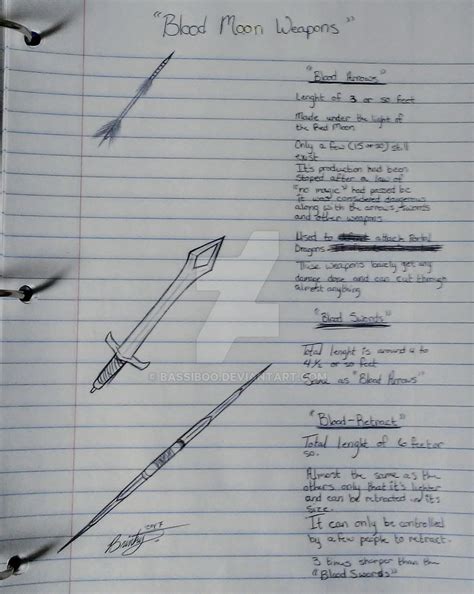 "Blood Moon Weapons"
"Blood Arrows"
Lenght of 3 or so feet
Made under the light of
the Red Moon
Only a few (15 or so) still
exist
It's production had been
stoped after a law of
"no magic" had passed bc
it was considered dangerous
along with the arrows, swords
and other weapons
Used to attack
Dragons
These weapons barely get any
damage done and can cut through
almost anything
"Blood Swords"
Total lenght is around 4 to
4½ or so feet
Same as "Blood Arrows"
"Blood-Retract"
Total lenght of 6 feet or
so.
Almost the same as the
others only that it's lighter
and can be retracted in it's
size.
It can only be controlled
by a few people to retract.
3 times sharper than the
"Blood Swords"
©BASSIBOO.DEVIANTART.COM
2017